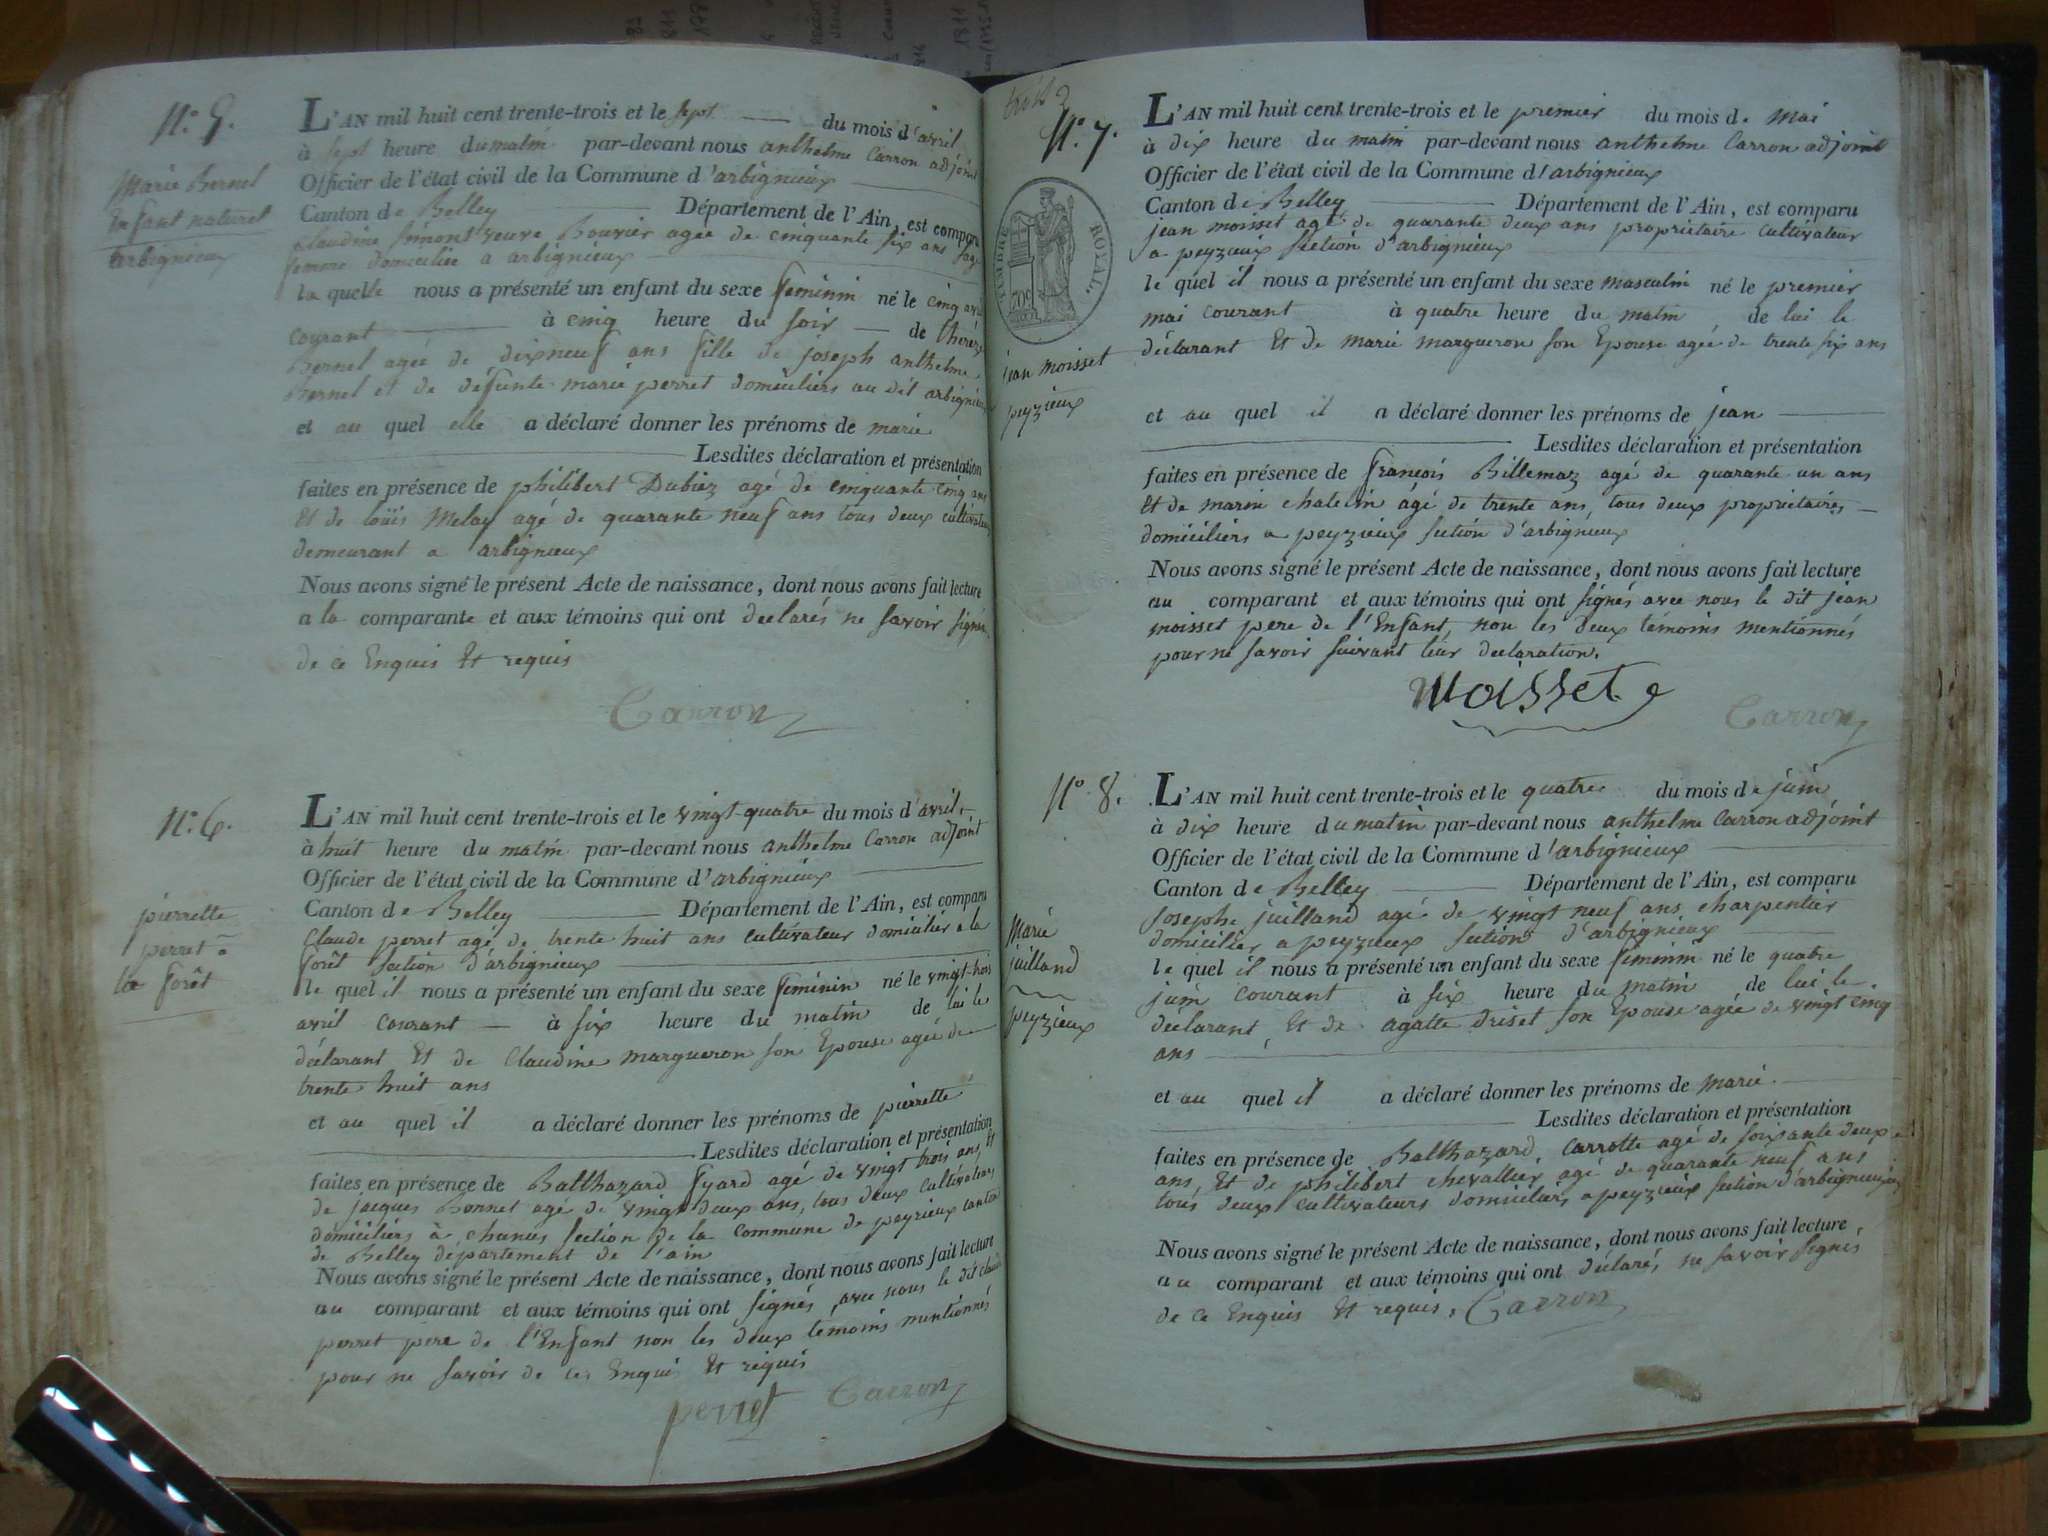 N.o 5.
Marie Bernel
Enfant naturel
arbignieux
L'AN mil huit cent trente-trois et le sept du mois d'avril
à sept heure du matin par-devant nous anthelme Carron adjoint
Officier de l'état civil de la Commune d'arbignieux
Canton de Belley Département de l'Ain, est comparu
Claudine Simont veuve Bouvier agée de cinquante six ans sage
femme domiciliée a arbignieux
la quelle nous a présenté un enfant du sexe feminin né le cinq avril
courant à cinq heure du soir de thérèze
Bernel agée de dixneuf ans fille de joseph anthelme
Bernel et de defunte marie perret domiciliers au dit arbignieux
et au quel elle a déclaré donner les prénoms de marie
Lesdites déclaration et présentation
faites en présence de philibert Dubiez agé de cinquante cinq ans
Et de loüis Melay agé de quarante neuf ans tous deux cultivateurs
demeurant a arbignieux
Nous avons signé le présent Acte de naissance, dont nous avons fait lecture
a la comparante et aux témoins qui ont declarés ne savoir signer
de ce Enquis Et requis
Carron
N.o 6.
pierrette
perret à
la forêt
L'AN mil huit cent trente-trois et le vingt-quatre du mois d'avril
à huit heure du matin par-devant nous anthelme Carron adjoint
Officier de l'état civil de la Commune d'arbignieux
Canton de Belley Département de l'Ain, est comparu
Claude perret agé de trente huit ans cultivateur domicilié a la
forêt section d'arbignieux
le quel il nous a présenté un enfant du sexe feminin né le vingt-trois
avril courant à six heure du matin de lui le
déclarant Et de Claudine margueron son Epouse agée de
trente huit ans
et au quel il a déclaré donner les prénoms de pierrette
Lesdites déclaration et présentation
faites en présence de Balthazard fyard agé de vingt trois ans, Et
de jacques Bornet agé de vingt deux ans, tous deux cultivateurs
domiciliers à de la commune de peyrieux canton
de Belley département de l'ain
Nous avons signé le présent Acte de naissance, dont nous avons fait lecture
au comparant et aux témoins qui ont signés avec nous le dit claude
perret père de l'Enfant non les deux temoins mentionnés
pour ne savoir de ce Enquis Et requis
perret Carron
N.o 7.
TIMBRE ROYAL
70c
jean moisset
peyzieux
L'AN mil huit cent trente-trois et le premier du mois de Mai
à dix heure du matin par-devant nous anthelme Carron adjoint
Officier de l'état civil de la Commune d'arbignieux
Canton de Belley Département de l'Ain, est comparu
jean moisset agé de quarante deux ans propriétaire cultivateur
a peyzieux section d'arbignieux
le quel il nous a présenté un enfant du sexe masculin né le premier
mai courant à quatre heure du matin de lui le
déclarant Et de marie margueron son Epouse agée de trente six ans
et au quel il a déclaré donner les prénoms de jean
Lesdites déclaration et présentation
faites en présence de françois Billemaz agé de quarante un ans
Et de marin chatelin agé de trente ans, tous deux propriétaires
domiciliers a peyzieux section d'arbignieux
Nous avons signé le présent Acte de naissance, dont nous avons fait lecture
au comparant et aux témoins qui ont signés avec nous le dit jean
moisset pere de l'Enfant, non les deux temoins mentionnés
pour ne savoir suivant leur declaration.
Moisset
Carron
N.o 8.
Marie
juilland
peyzieux
L'AN mil huit cent trente-trois et le quatre du mois de juin
à dix heure du matin par-devant nous anthelme Carron adjoint
Officier de l'état civil de la Commune d'arbignieux
Canton de Belley Département de l'Ain, est comparu
Josephe juilland agé de vingt neuf ans charpentier
domicilier a peyzieux section d'arbignieux
le quel il nous a présenté un enfant du sexe feminin né le quatre
juin courant à six heure du matin de lui le
déclarant Et de agatte driset son Epouse agée de vingt cinq
ans
et au quel il a déclaré donner les prénoms de Marie
Lesdites déclaration et présentation
faites en présence de Balthazard Carrotte agé de soixante deux
ans, Et de philibert chevallier agé de quarante neuf ans
tous deux cultivateurs domiciliers a peyzieux section d'arbignieux
Nous avons signé le présent Acte de naissance, dont nous avons fait lecture
au comparant et aux témoins qui ont déclarés ne savoir signés
de ce Enquis Et requis. Carron